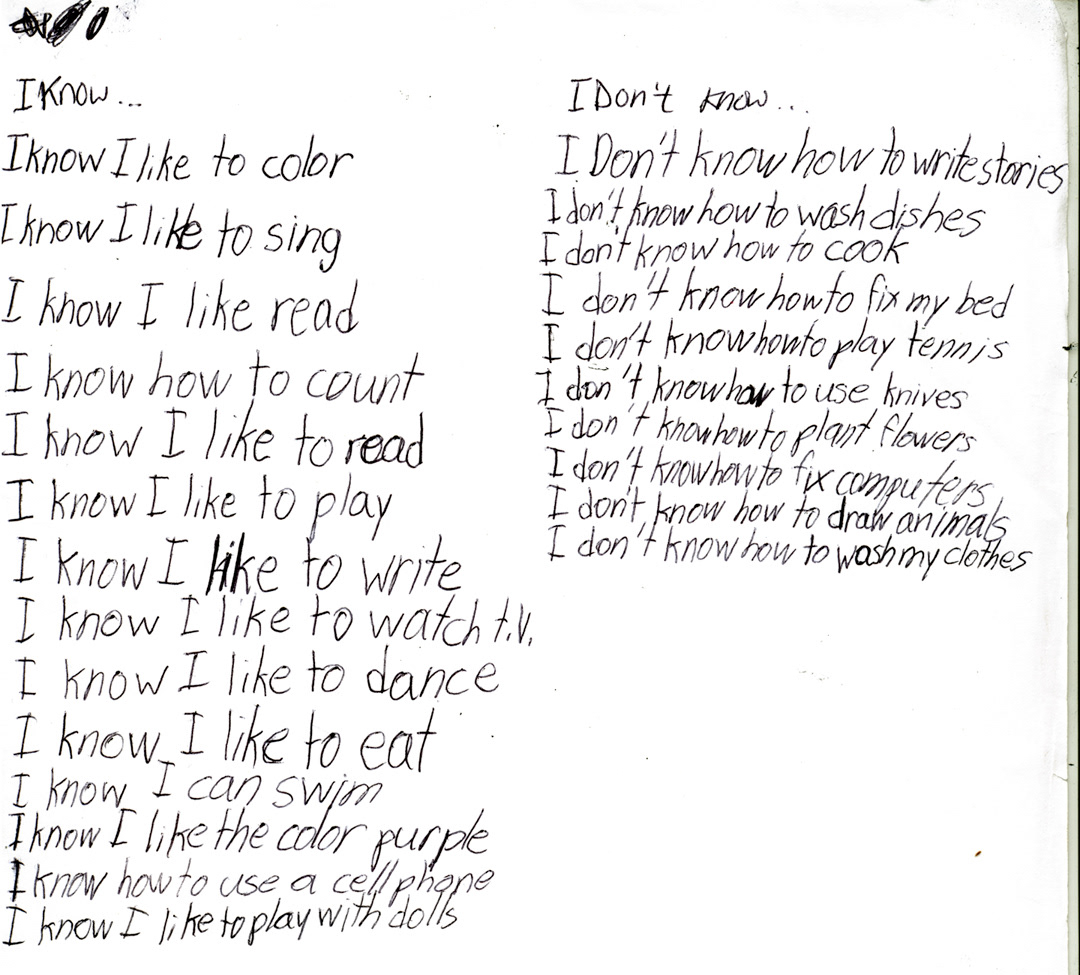 I Know...
I know I like to color
I know I like to sing
I know I like read
I know how to count
I know I like to read
I know I like to play
I know I like to write
I know I like to watch t.v.
I know I like to dance
I know I like to eat
I know I can swim
I know I like the color purple
I know how to use a cell phone
I know I like to play with dolls
I Don't know...
I Don't know how to write stories
I don't know how to wash dishes
I don't know how to cook
I don't know how to fix my bed
I don't know how to play tennis
I don't know how to use knives
I don't know how to plant flowers
I don't know how to fix computers
I don't know how to draw animals
I don't know how to wash my clothes